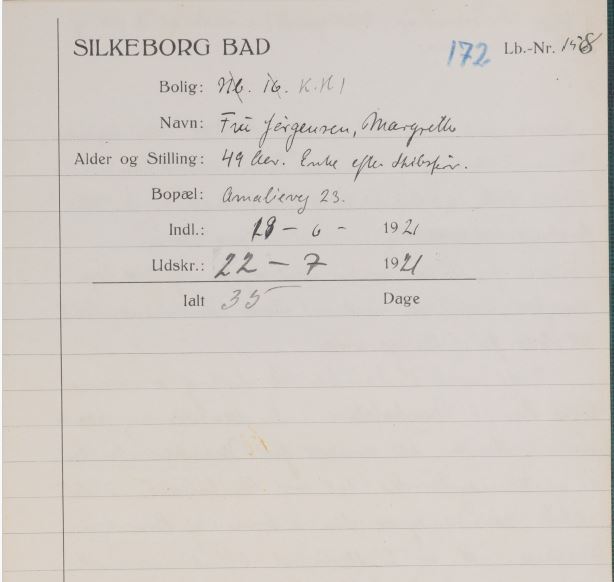 SILKEBORG BAD 172 Lb.-Nr.
Bolig: K.H1
Navn: Fru Jørgensen, Margrethe
Alder og Stilling: 49 Aar. Enke efter Skibsfør.
Bopæl: Amalievej 23.
Indl.: 18 - 6 - 1921
Udskr.: 22 - 7 1921
Ialt 35 Dage